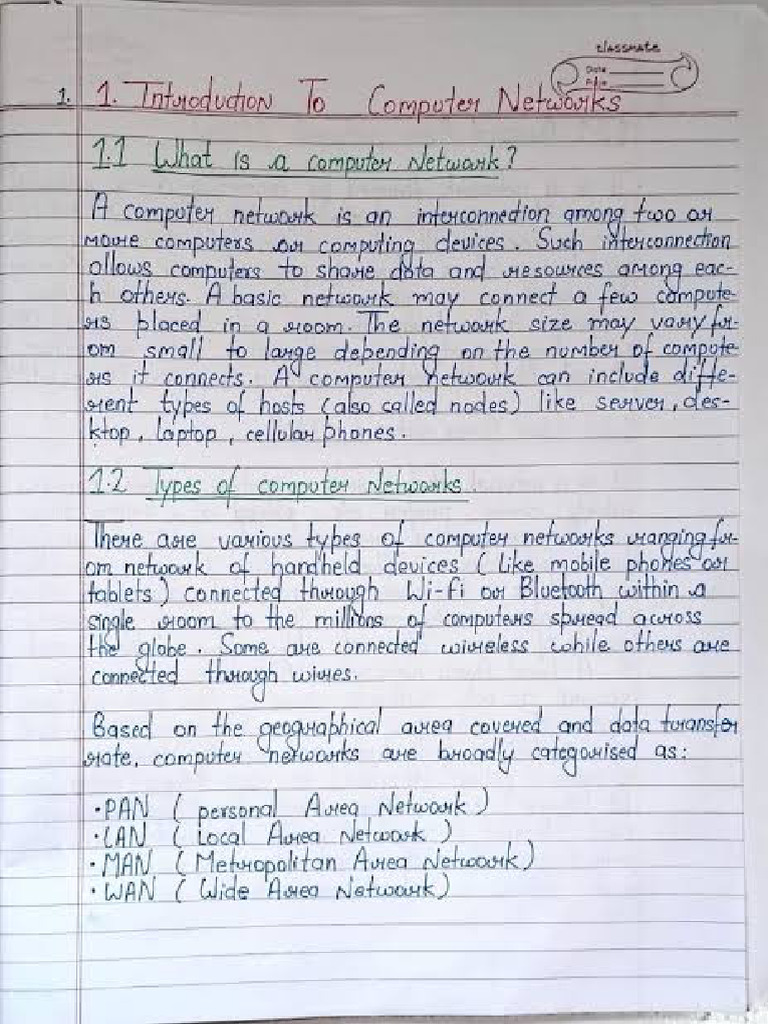 classmate
Date
Page
1. 1. Introduction To Computer Networks
1.1 What is a computer Network?
A computer network is an interconnection among two or
more computers or computing devices. Such interconnection
allows computers to share data and resources among eac-
h others. A basic network may connect a few compute-
rs placed in a room. The network size may vary fr-
om small to large depending on the number of compute-
rs it connects. A computer network can include diffe-
rent types of hosts (also called nodes) like server, des-
ktop, laptop, cellular phones.
1.2 Types of computer Networks.
There are various types of computer networks ranging fr-
om network of handheld devices (Like mobile phones or
tablets) connected through Wi-Fi or Bluetooth within a
single room to the millions of computers spread across
the globe. Some are connected wireless while others are
connected through wires.
Based on the geographical area covered and data transfer
rate, computer networks are broadly categorised as:
• PAN ( personal Area Network )
• LAN ( Local Area Network )
• MAN ( Metropolitan Area Network)
• WAN ( Wide Area Network)